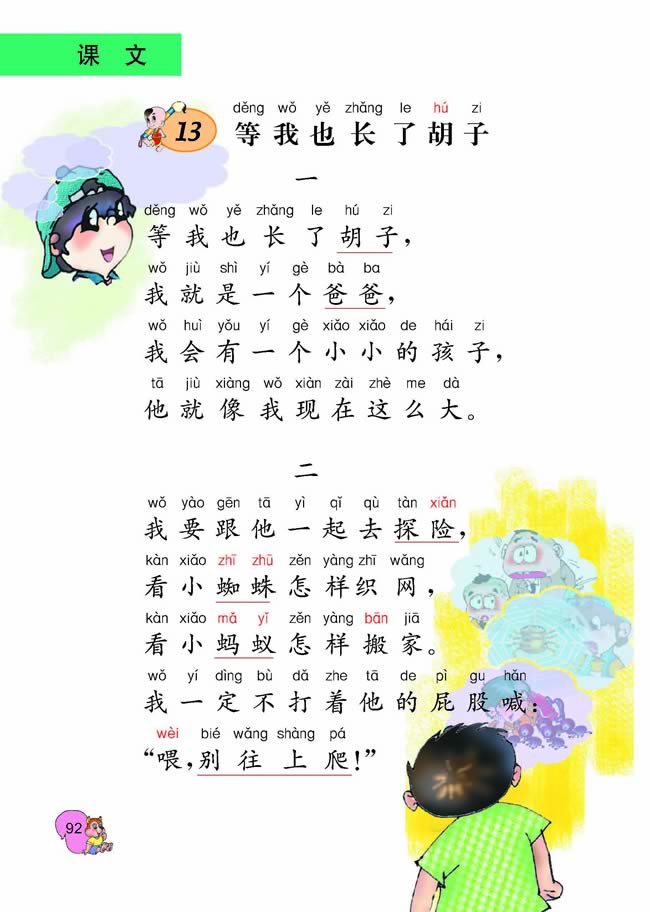 课 文
děng wǒ yě zhǎng le hú zi
13 等我也长了胡子
一
děng wǒ yě zhǎng le hú zi
等我也长了胡子，
wǒ jiù shì yí gè bà ba
我就是一个爸爸，
wǒ huì yǒu yí gè xiǎo xiǎo de hái zi
我会有一个小小的孩子，
tā jiù xiàng wǒ xiàn zài zhè me dà
他就像我现在这么大。
二
wǒ yào gēn tā yì qǐ qù tàn xiǎn
我要跟他一起去探险，
kàn xiǎo zhī zhū zěn yàng zhī wǎng
看小蜘蛛怎样织网，
kàn xiǎo mǎ yǐ zěn yàng bān jiā
看小蚂蚁怎样搬家。
wǒ yí dìng bù dǎ zhe tā de pì gu hǎn
我一定不打着他的屁股喊：
wèi bié wǎng shàng pá
“喂，别往上爬！”
92